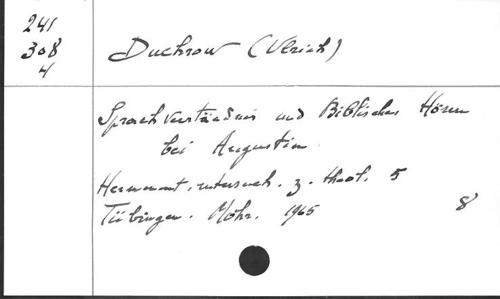 241
308
4
Duchrow (Ulrich)
Sprachverständnis und Biblisches Hören
bei Augustin
Hermeneut. untersuch. z. theol. 5
Tübingen. Mohr. 1965
8